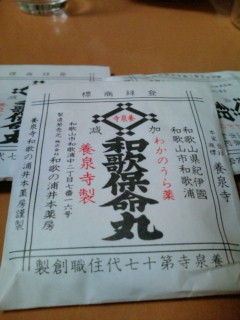 標商録登
養泉寺
加減
和歌山県紀伊國
和歌山市和歌浦
養泉寺
わかのうら薬
和歌保命丸
養泉寺製
和歌山市和歌浦中一丁目七番一六号
製造発売元 株式会社 和歌の浦井本薬房
養泉寺和歌の浦井本薬房謹製
製創職住代七十第寺泉養